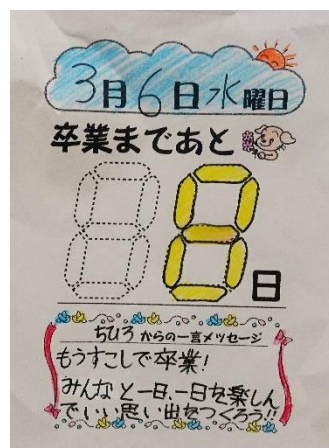 3月6日水曜日
卒業まであと
8日
ちひろ からの一言メッセージ
もうすこしで卒業!
みんなと一日、一日を楽しん
でいい思い出をつくろう!!